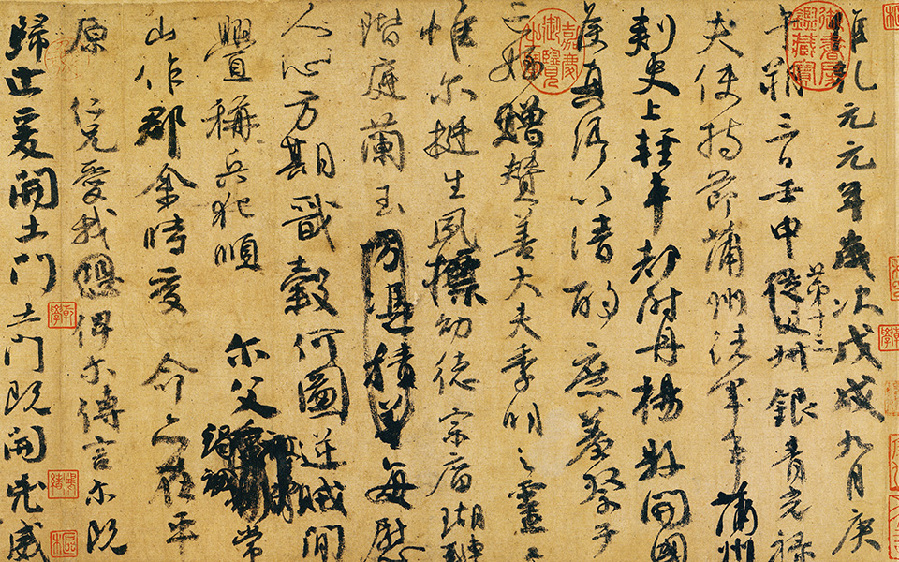 維乾元元年歲次戊戌九月庚
午朔三日壬申第十三從父銀青光祿
夫使持節蒲州諸軍事蒲州
刺史上輕車都尉丹楊縣開國
侯真卿以清酌庶羞祭于
亡姪贈贊善大夫季明之靈
惟爾挺生夙標幼德宗廟瑚璉
階庭蘭玉方憑積善每慰
人心方期戩穀何圖逆賊閒
釁稱兵犯順 爾父竭誠常
山作郡余時受命亦在平
原 仁兄愛我俾爾傳言爾既
歸止爰開土門土門既開凶威
御書房鑑藏寶
嘉慶御覽之寶